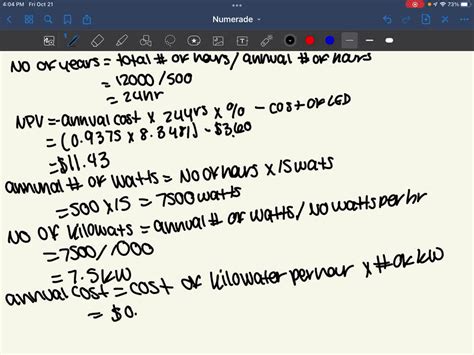 4:04 PM Fri Oct 21
73%
Numerade
NO OF years = total # of hours / annual # of hours
= 12000 / 500
= 24hr
NPV = annual cost x 24 yrs x % - cost of LED
= (0.9375 x 8.3481) - $3.60
= $11.43
annunal # of watts = No of hours x 15 wats
= 500 x 15 = 7500 watts
NO OF kilowats = annual # of watts / No watts per hr
= 7500 / 1000
= 7.5 kW
annual cost = cost of kilowater per hour x # of kW
= $0.